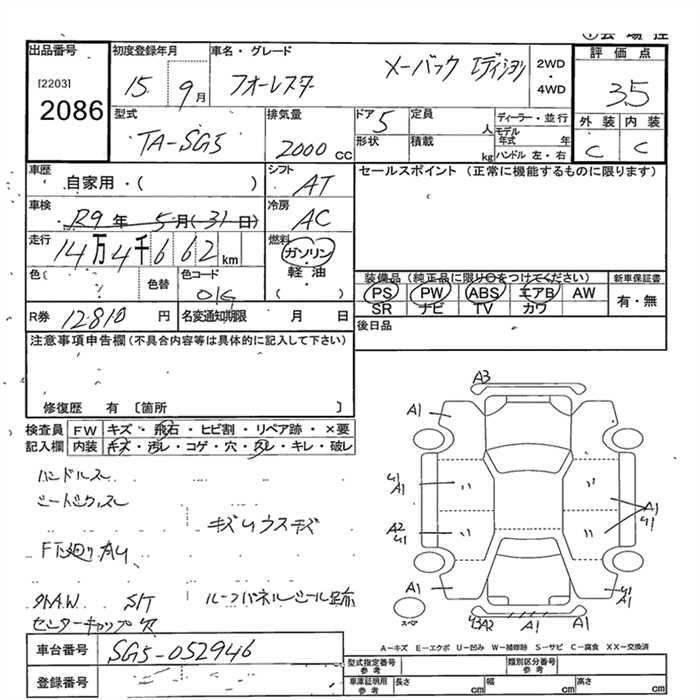 出品番号 初度登録年月 車名・グレード 評価点
[2203] 2086
15 9月 フォーレスター メーバック エディション 2WD・4WD 35
型式 排気量 ドア 定員 ディーラー・並行 外装 内装
TA-SG5 2000 CC 5 人 モデル年式 年 C C
形状 積載 kg ハンドル 左・右
車歴 シフト セールスポイント (正常に機能するものに限ります)
自家用・( ) AT
車検 冷房
R9年 5月(31日) AC
走行 燃料
14万4千662km ガソリン
軽油
( )
色( ) 色替 色コード 装備品 (純正品に限り○をつけてください) 新車保証書
PS PW ABS エアB AW 有・無
SR ナビ TV カワ
R券 12810 円 名変通知期限 月 日 後日品
注意事項申告欄(不具合内容等は具体的に記入して下さい)
修復歴 有 〔箇所 〕
検査員 FW キズ・飛石・ヒビ割・リペア跡・×要
記入欄 内装 キズ・汚レ・コゲ・穴・スレ・キレ・破レ
ハンドルスレ
キズ U ウスキズ
S/T
センターキャップ欠
A3
A1 A1
41 A1
A1 41
A2 41
A1 A1
スペア
A1
A-キズ E-エクボ U-凹み W-補修跡 S-サビ C-腐食 XX-交換済
車台番号 SG5-052946 型式指定番号 参考 類別区分番号 参考
登録番号 車庫証明用 参考 長さ cm 幅 cm 高さ cm